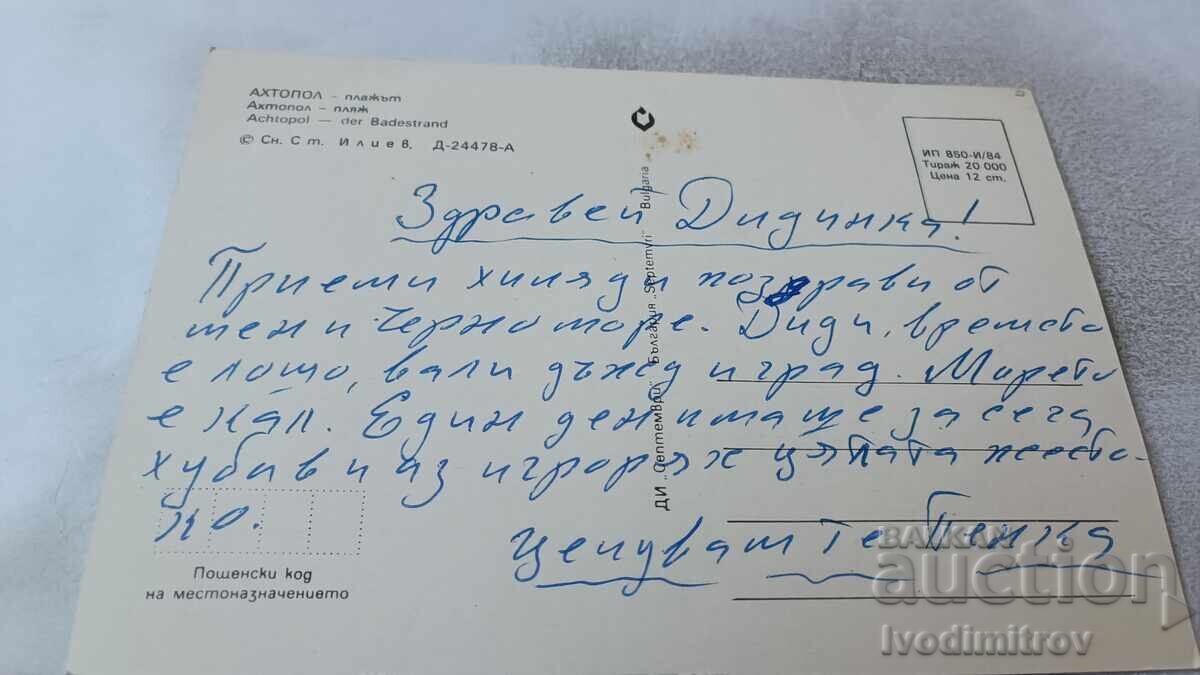 АХТОПОЛ - плажът
Ахтопол - пляж
Achtopol — der Badestrand
© Сн. Ст. Илиев, Д-24478-А
ИП 850-И/84
Тираж 20 000
Цена 12 ст.
ДИ „Септември" България „Septemvri" Bulgaria
Здравей Дидинка!
Приеми хиляди поздрави от
мен и Черно море. Диди, времето
е лошо, вали дъжд и град. Морето
е кал. Един ден имаше за сега
хубав и аз изгорях цялата жесто-
ко.
Целувам те Пенка
Пощенски код
на местоназначението
БАЛКАН
auction
Ivodimitrov